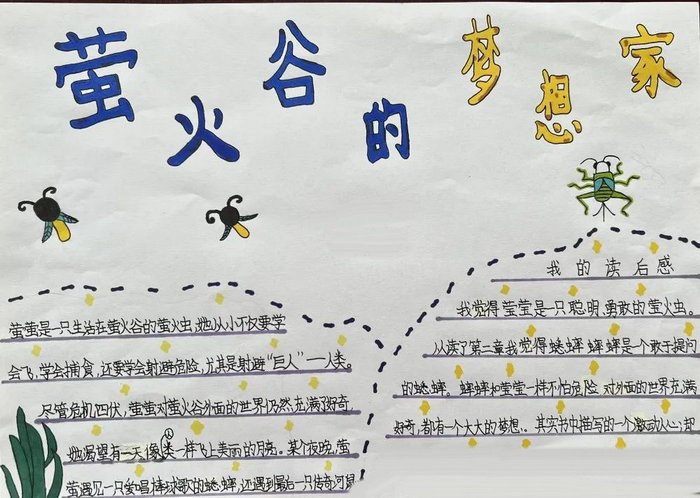 萤火谷的梦想家
萤萤是一只生活在萤火谷的萤火虫,她从小不仅要学
会飞,学会捕食,还要学会躲避危险,尤其是躲避“巨人”——人类。
尽管危机四伏,萤萤对萤火谷外面的世界仍然充满好奇
她渴望有一天像人类一样飞上美丽的月亮。某个夜晚,萤
萤遇见一只爱唱棒球歌的蟋蟀,还遇到最后一只传奇河
我的读后感
我觉得莹莹是一只聪明,勇敢的萤火虫。
从读了第二章我觉得蟋蟀蟀蟀是个敢于提问
的蟋蟀。蟀蟀和莹莹一样不怕危险,对外面的世界充满
好奇,都有一个大大的梦想。其实书中描写的一个激动人心,把